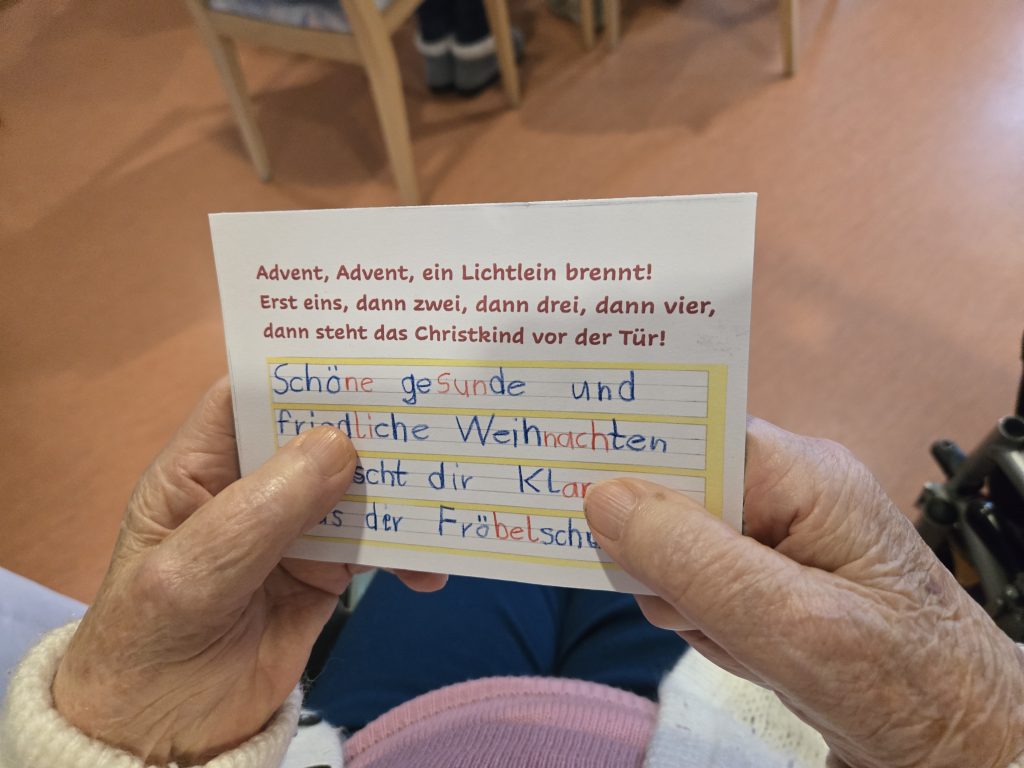 Advent, Advent, ein Lichtlein brennt!
Erst eins, dann zwei, dann drei, dann vier,
dann steht das Christkind vor der Tür!
Schöne gesunde und
friedliche Weihnachten
dir
der